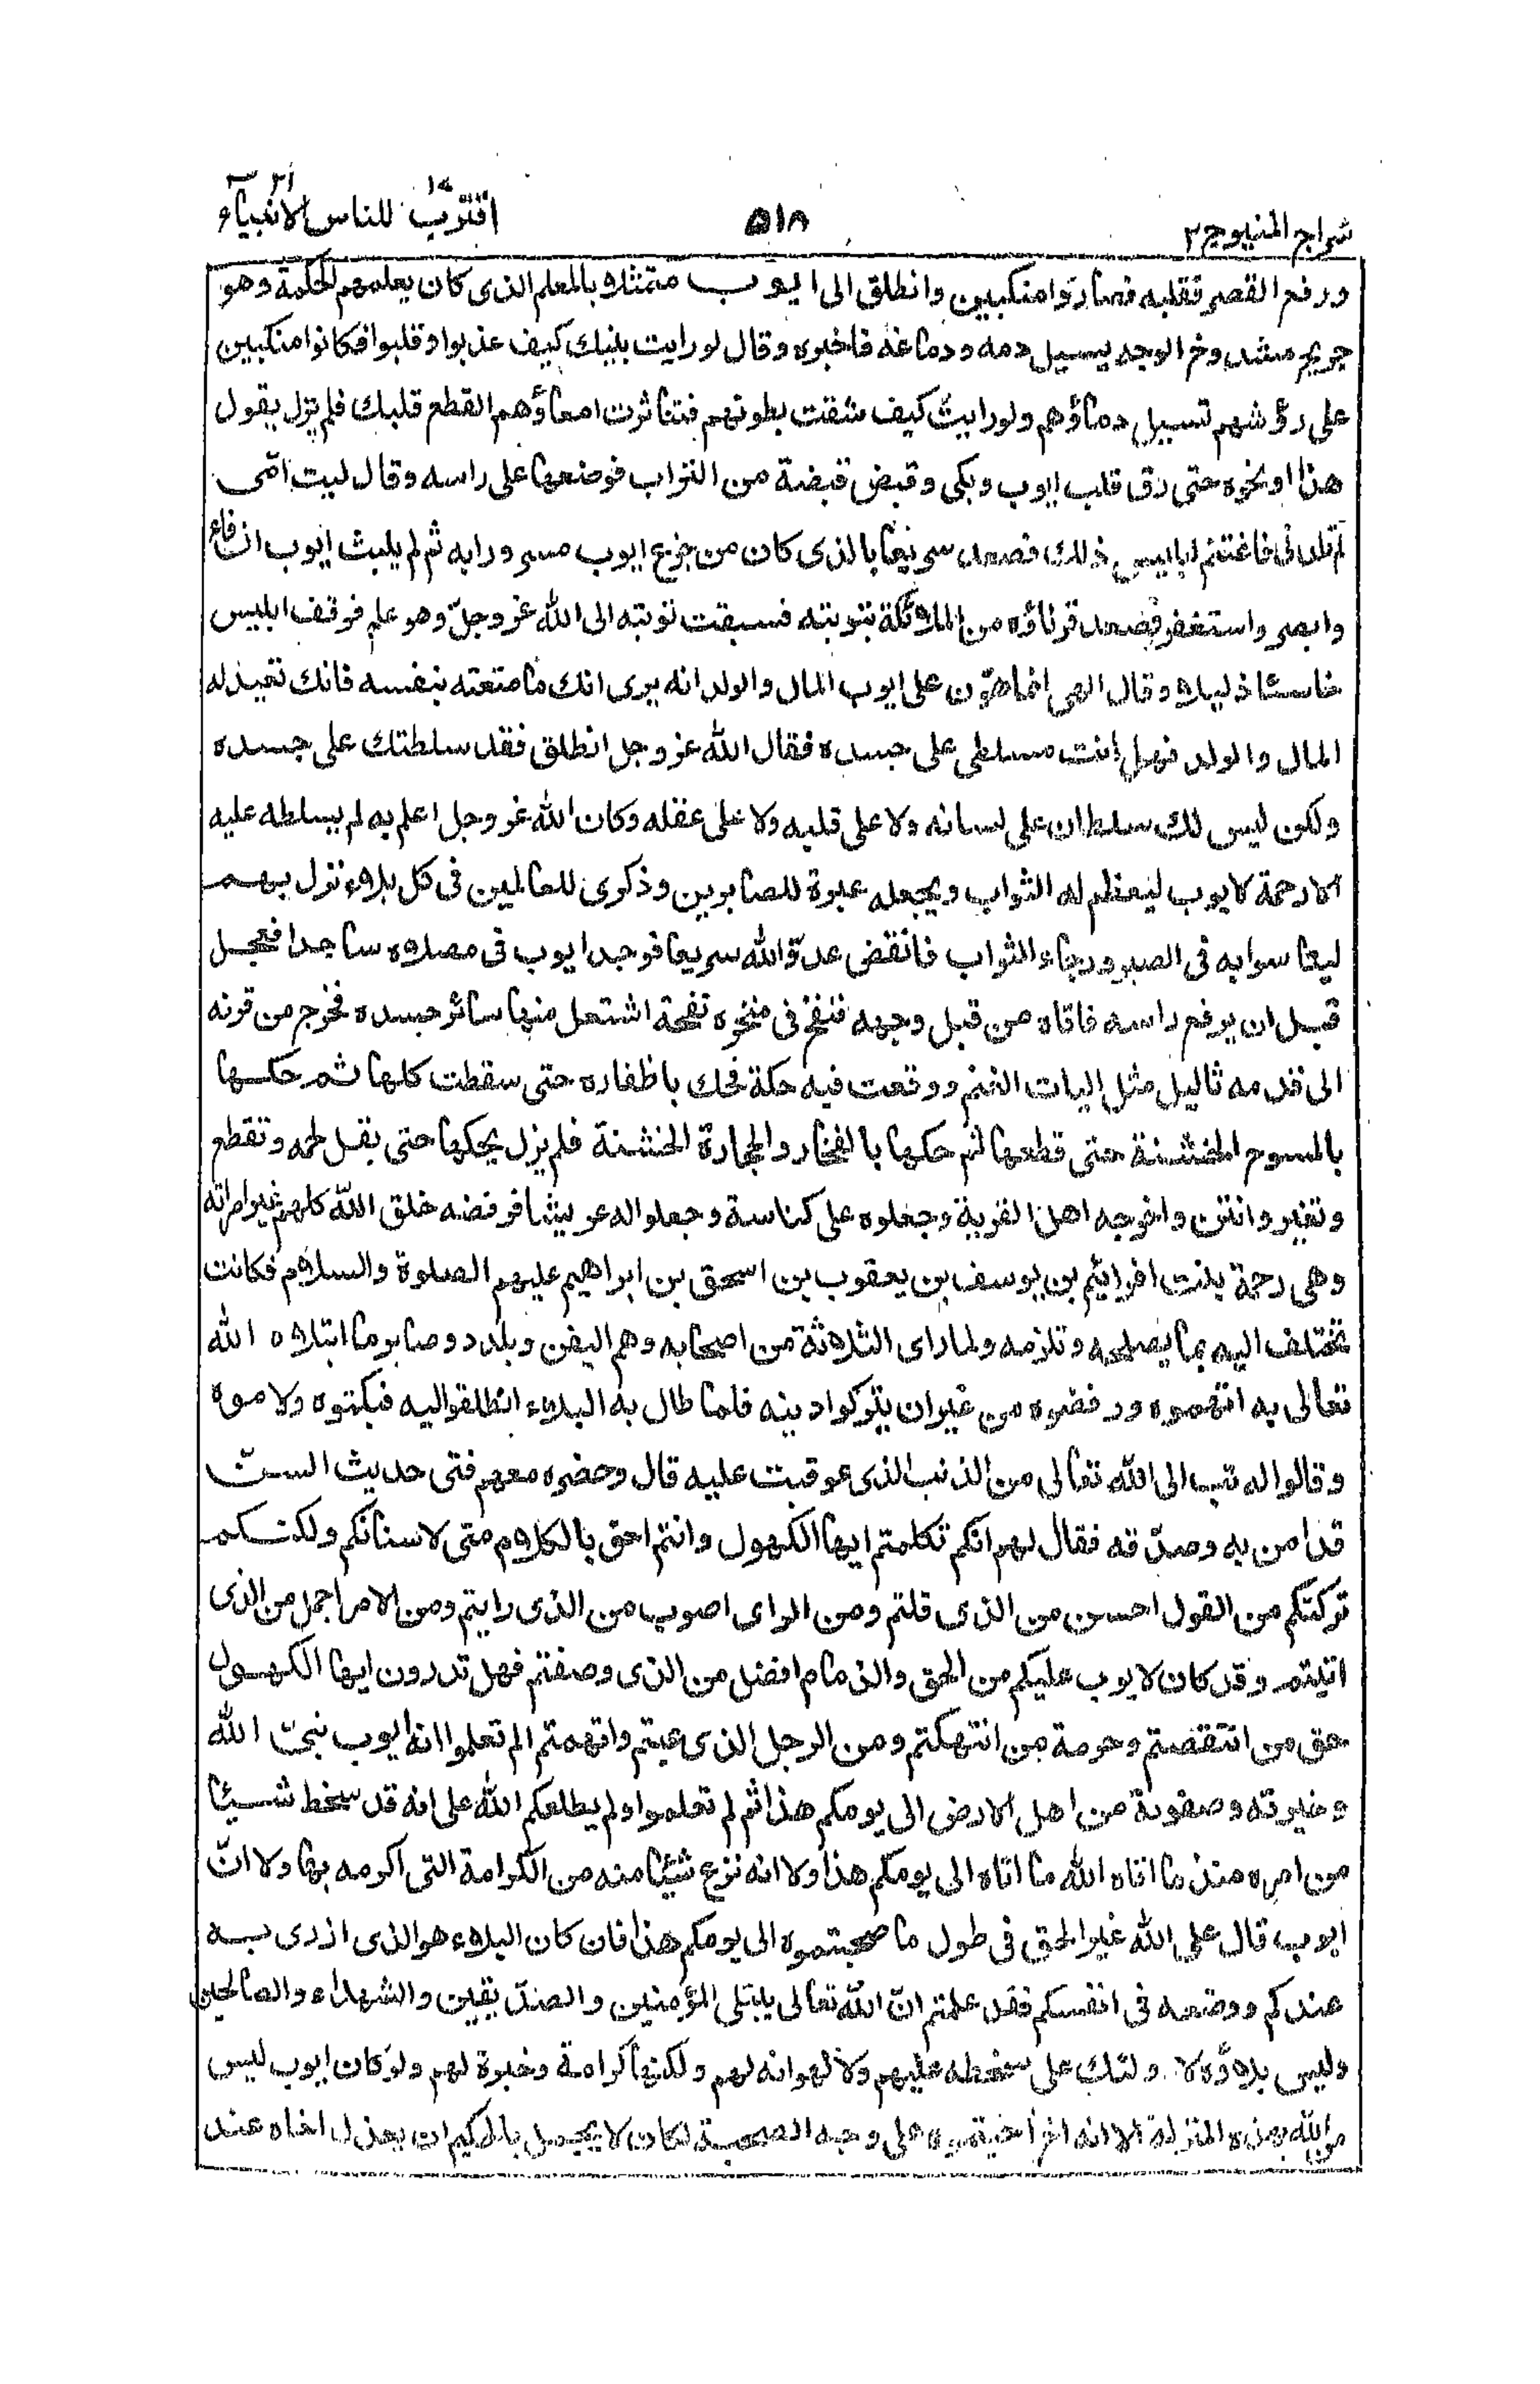 سراج المنير ج ٣
٥١٨
اقترب للناس ١٧ الانبياء ٢١
ورفع القصر فقلبه فصاروا منكبين وانطلق الى ايوب متمثلا بالمعلم الذى كان يعلمهم الحكمة وهو
جريح مشدوخ الوجه يسيل دمه ودماغه فاخبره وقال لو رايت بنيك كيف عذبوا وقلبوا فكانوا منكبين
على رؤسهم تسيل دماؤهم ولو رايت كيف شقت بطونهم فتناثرت امعاؤهم القطع قلبك فلم يزل يقول
هذا او نحوه حتى رق قلب ايوب وبكى وقبض قبضة من التراب فوضعها على راسه وقال ليت امى
لم تلدنى فاغتنم ابليس ذلك فصعد سريعا بالذى كان من جزع ايوب مسرورا به ثم لم يلبث ايوب ان فاء
وابصر واستغفر فصعد قرناؤه من الملائكة بتوبته فسبقت توبته الى الله عز وجل وهو علم فوقف ابليس
خاسئا ذليلا وقال الهى انما هون على ايوب المال والولد انه يرى انك ما متعته بنفسه فانك تعيد له
المال والولد فهل انت مسلطى على جسده فقال الله عز وجل انطلق فقد سلطتك على جسده
ولكن ليس لك سلطان على لسانه ولا على قلبه ولا على عقله وكان الله عز وجل اعلم به لم يسلطه عليه
الا رحمة لايوب ليعظم له الثواب ويجعله عبرة للصابرين وذكرى للعالمين فى كل بلاء نزل بهم
ليتاسوا به فى الصبر ورجاء الثواب فانقض عدو الله سريعا فوجد ايوب فى مصلاه ساجدا فعجل
قبل ان يرفع راسه فاتاه من قبل وجهه فنفخ فى منخره نفخة اشتعل منها سائر جسده فخرج من قرنه
الى قدمه ثاليل مثل اليات الغنم ووقعت فيه حكة فحك باظفاره حتى سقطت كلها ثم حكها
بالمسوح الخشنة حتى قطعها ثم حكها بالفخار والحجارة الخشنة فلم يزل يحكها حتى بقل لحمه وتقطع
وتغير وانتن واخرجه اهل القرية وجعلوه على كناسة وجعلوا له عريشا فرفضه خلق الله كلهم غير امراته
وهى رحمة بنت افراثيم بن يوسف بن يعقوب بن اسحق بن ابراهيم عليهم الصلوة والسلام فكانت
تختلف اليه بما يصلحه وتلزمه ولما راى الثلاثة من اصحابه وهم اليفن وبلدد وصابر ما ابتلاه الله
تعالى به اتهموه ورفضوه من غير ان يتركوا دينه فلما طال به البلاء انطلقوا اليه فبكتوه ولاموه
وقالوا له تب الى الله تعالى من الذنب الذى عوقبت عليه قال وحضره معهم فتى حديث السن
قد امن به وصدقه فقال لهم انكم تكلمتم ايها الكهول وانتم احق بالكلام منى لاسنانكم ولكنكم
تركتم من القول احسن من الذى قلتم ومن الراى اصوب من الذى رايتم ومن الامر اجمل من الذى
اتيتم وقد كان لايوب عليكم من الحق والذمام افضل من الذى وصفتم فهل تدرون ايها الكهول
حق من انتقصتم وحرمة من انتهكتم ومن الرجل الذى عبتم واتهمتم الم تعلموا انه ايوب نبى الله
وخيرته وصفوته من اهل الارض الى يومكم هذا ثم لم تعلموا ولم يطلعكم الله على انه قد سخط شيئا
من امره منذ ما اتاه الله ما اتاه الى يومكم هذا ولا انه نزع شيئا منه من الكرامة التى اكرمه بها ولا ان
ايوب قال على الله غير الحق فى طول ما صحبتموه الى يومكم هذا فان كان البلاء هو الذى ازرى به
عندكم ووضعه فى انفسكم فقد علمتم ان الله تعالى يبتلى المؤمنين والصديقين والشهداء والصالحين
وليس بلاؤه لاولئك على سخطه عليهم ولا لهوانه لهم ولكنها كرامة وخيرة لهم ولو كان ايوب ليس
من الله بهذه المنزلة الا انه اخ اخيتموه على وجه الصحبة لكان لا يجمل بالحكيم ان يعذل اخاه عند